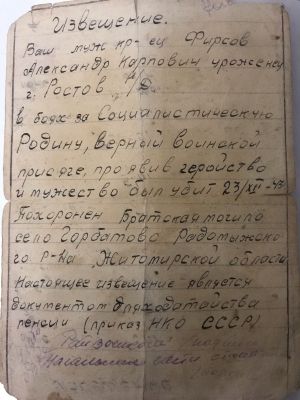 Извещение.
Ваш муж кр-ец Фирсов
Александр Карпович уроженец
г. Ростов н/Д
в боях за Социалистическую
Родину, верный воинской
присяге, проявив геройство
и мужество был убит 23/XII-43
Похоронен Братская могила
село Горбатово Радомыжско
го р-на Житомирской области
Настоящее извещение является
документом для ходатайства
пенсии (приказ НКО СССР)